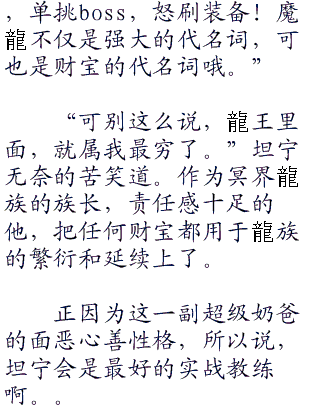 ，单挑boss，怒刷装备！魔
龍不仅是强大的代名词，可
也是财宝的代名词哦。”
“可别这么说，龍王里
面，就属我最穷了。”坦宁
无奈的苦笑道。作为冥界龍
族的族长，责任感十足的
他，把任何财宝都用于龍族
的繁衍和延续上了。
正因为这一副超级奶爸
的面恶心善性格，所以说，
坦宁会是最好的实战教练
啊。。